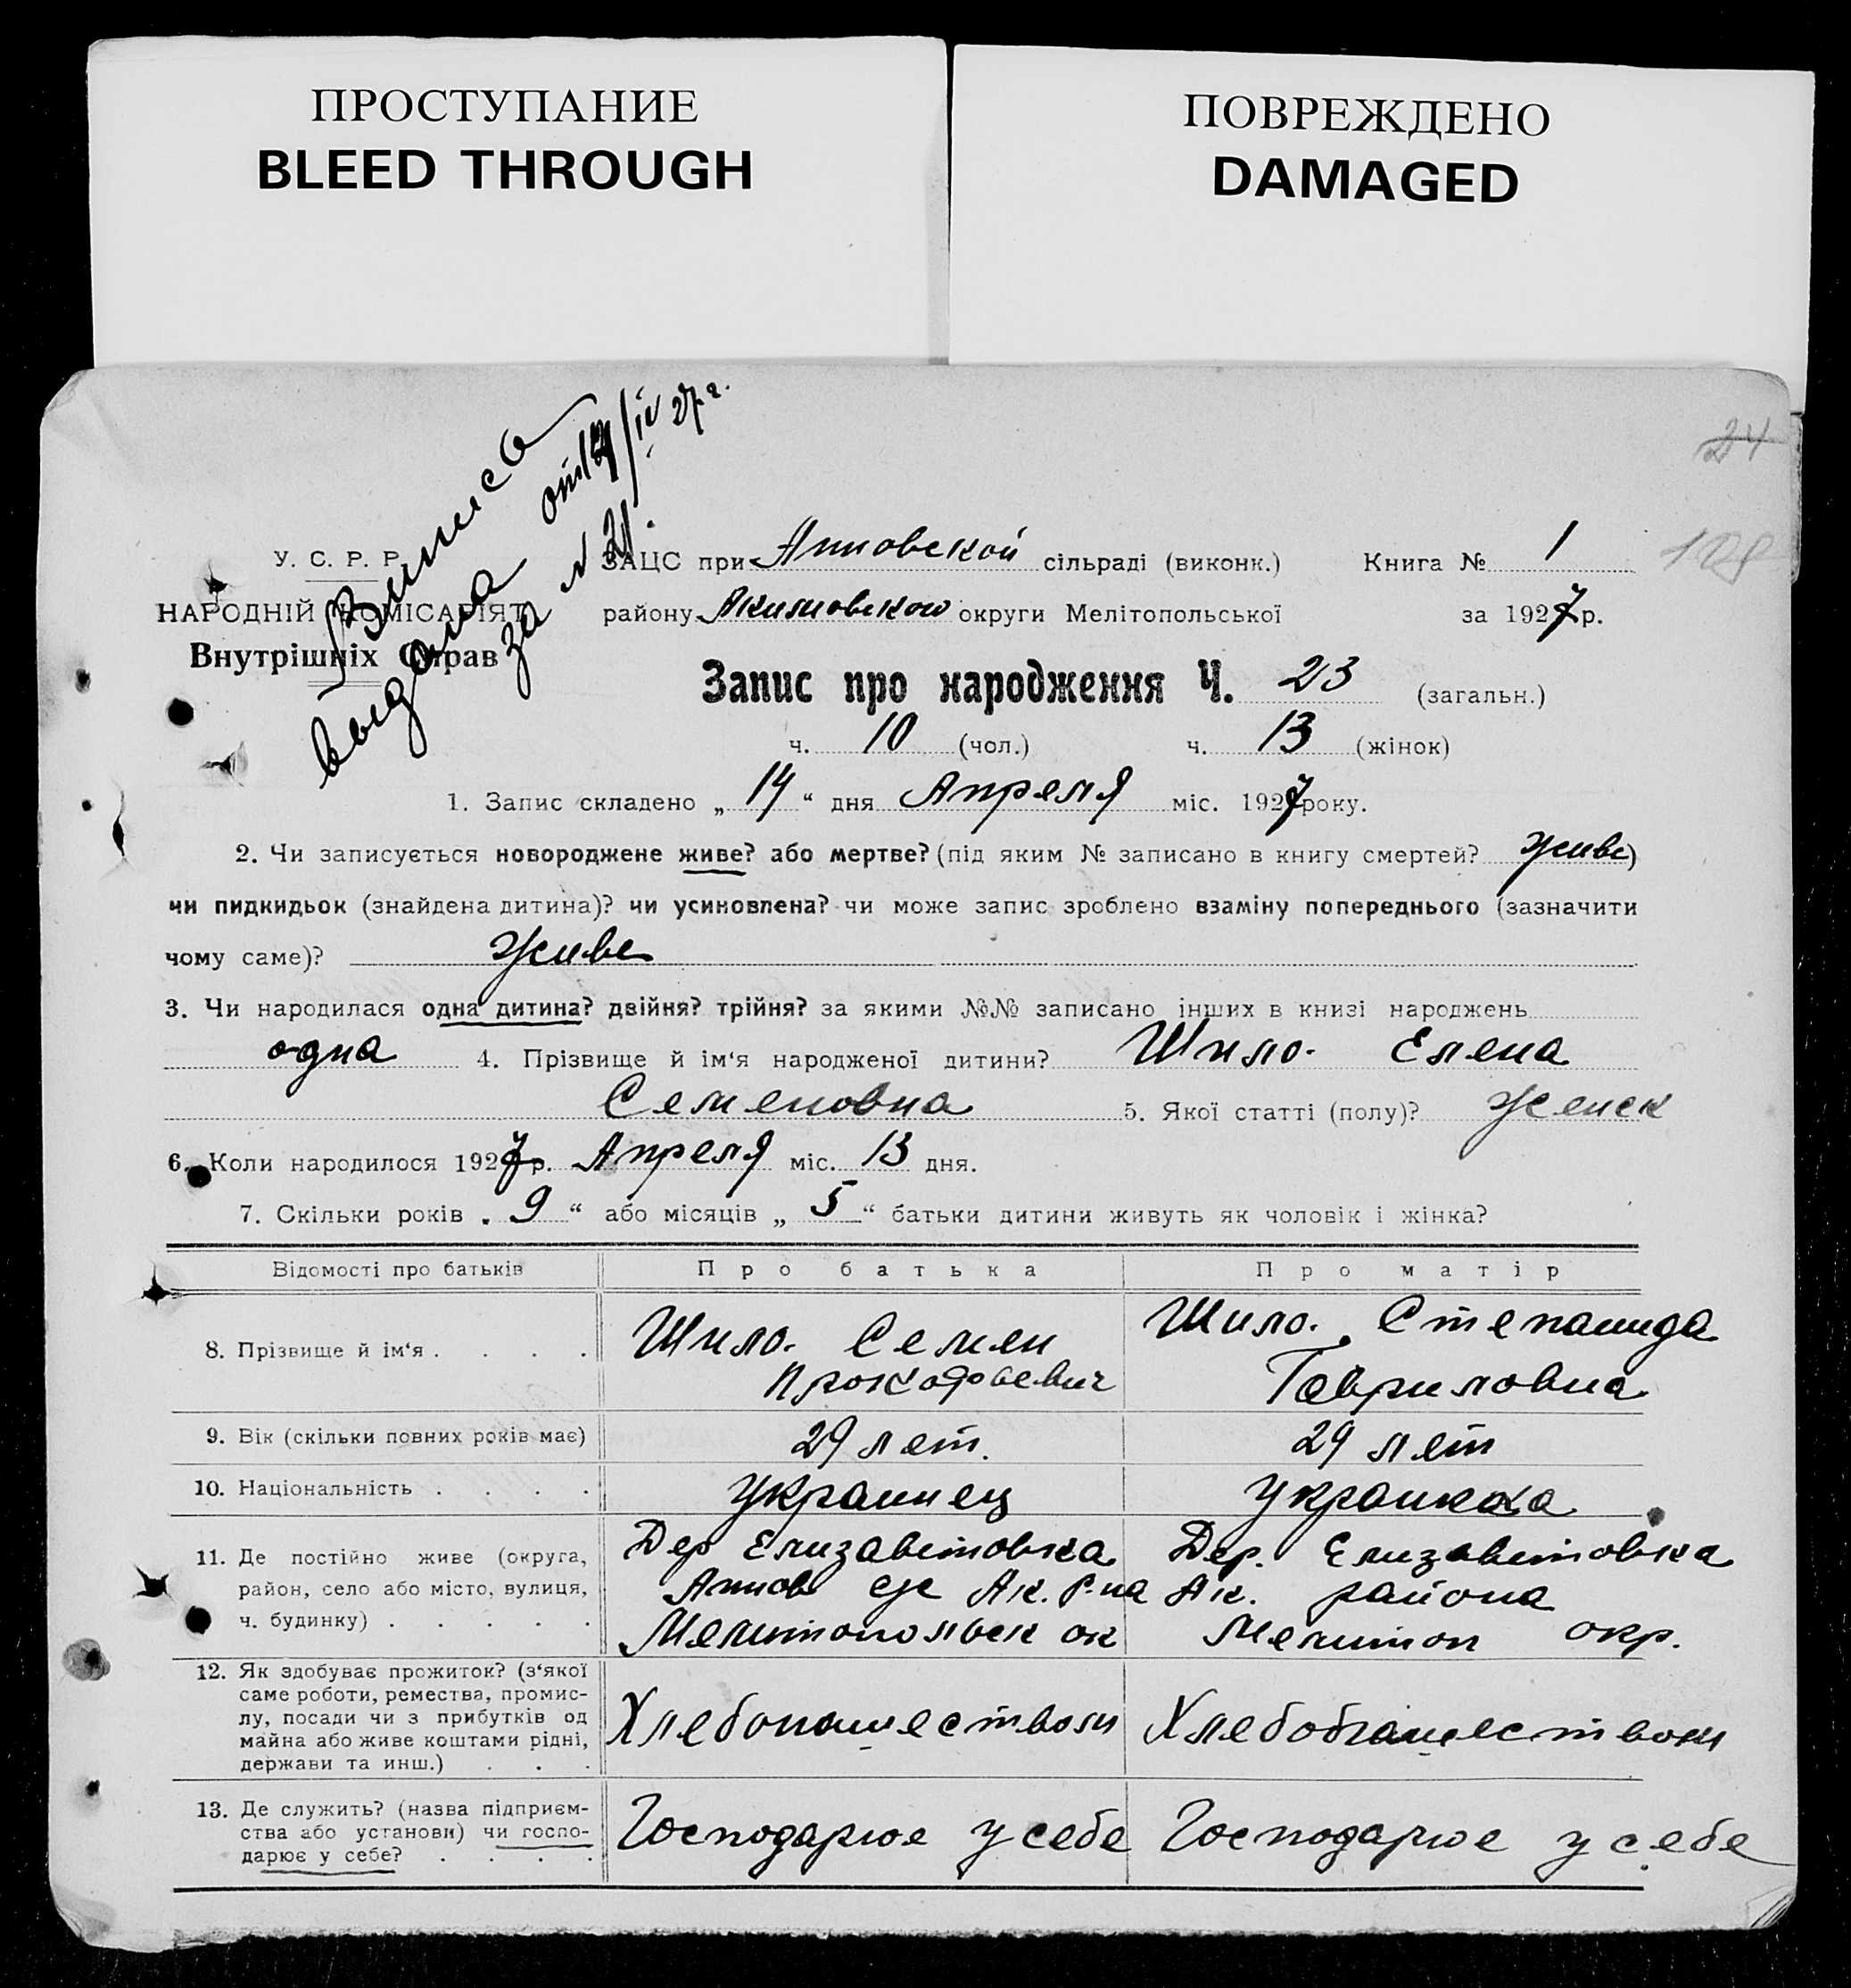 ПРОСТУПАНИЕ
BLEED THROUGH
ПОВРЕЖДЕНО
DAMAGED
24
128
Выпись
выдана от 14/IV 27 г.
за № 21.
У. С. Р. Р.
НАРОДНІЙ КОМІСАРІЯТ
Внутрішніх Справ
ЗАЦС при Анновской сільраді (виконк.) Книга № 1
району Акимовского округи Мелітопольської за 1927 р.
Запис про народження Ч. 23 (загальн.)
ч. 10 (чол.) ч. 13 (жінок)
1. Запис складено „ 14 “ дня Апреля міс. 1927 року.
2. Чи записується новороджене живе? або мертве? (під яким № записано в книгу смертей? живе)
чи пидкидьок (знайдена дитина)? чи усиновлена? чи може запис зроблено взаміну попереднього (зазначити
чому саме)? живе
3. Чи народилася одна дитина? двійня? трійня? за якими №№ записано інших в книзі народжень
одна 4. Прізвище й ім‘я народженої дитини? Шило. Елена
Семеновна 5. Якої статті (полу)? женск
6. Коли народилося 1927 р. Апреля міс. 13 дня.
7. Скільки років „ 9 “ або місяців „ 5 “ батьки дитини живуть як чоловік і жінка?
Відомості про батьків Про батька Про матір
8. Прізвище й ім‘я . . . .
Шило. Семен
Прокофьевич
Шило. Степанида
Гавриловна
9. Вік (скільки повних років має) 29 лет. 29 лет
10. Національність . . . . Украинец Украинка
11. Де постійно живе (округа,
район, село або місто, вулиця,
ч. будинку) . . . . .
Дер Елизаветовка
Аннов с/с Ак. р-на
Мелитопольск ок
Дер. Елизаветовка
Ак. района
Мелитоп окр.
12. Як здобуває прожиток? (з‘якої
саме роботи, ремества, промис-
лу, посади чи з прибутків од
майна або живе коштами рідні,
держави та инш.) . . .
Хлебопашеством
Хлебопашеством
13. Де служить? (назва підприєм-
ства або установи) чи госпо-
дарює у себе? . . . .
Господарює у себе
Господарює у себе